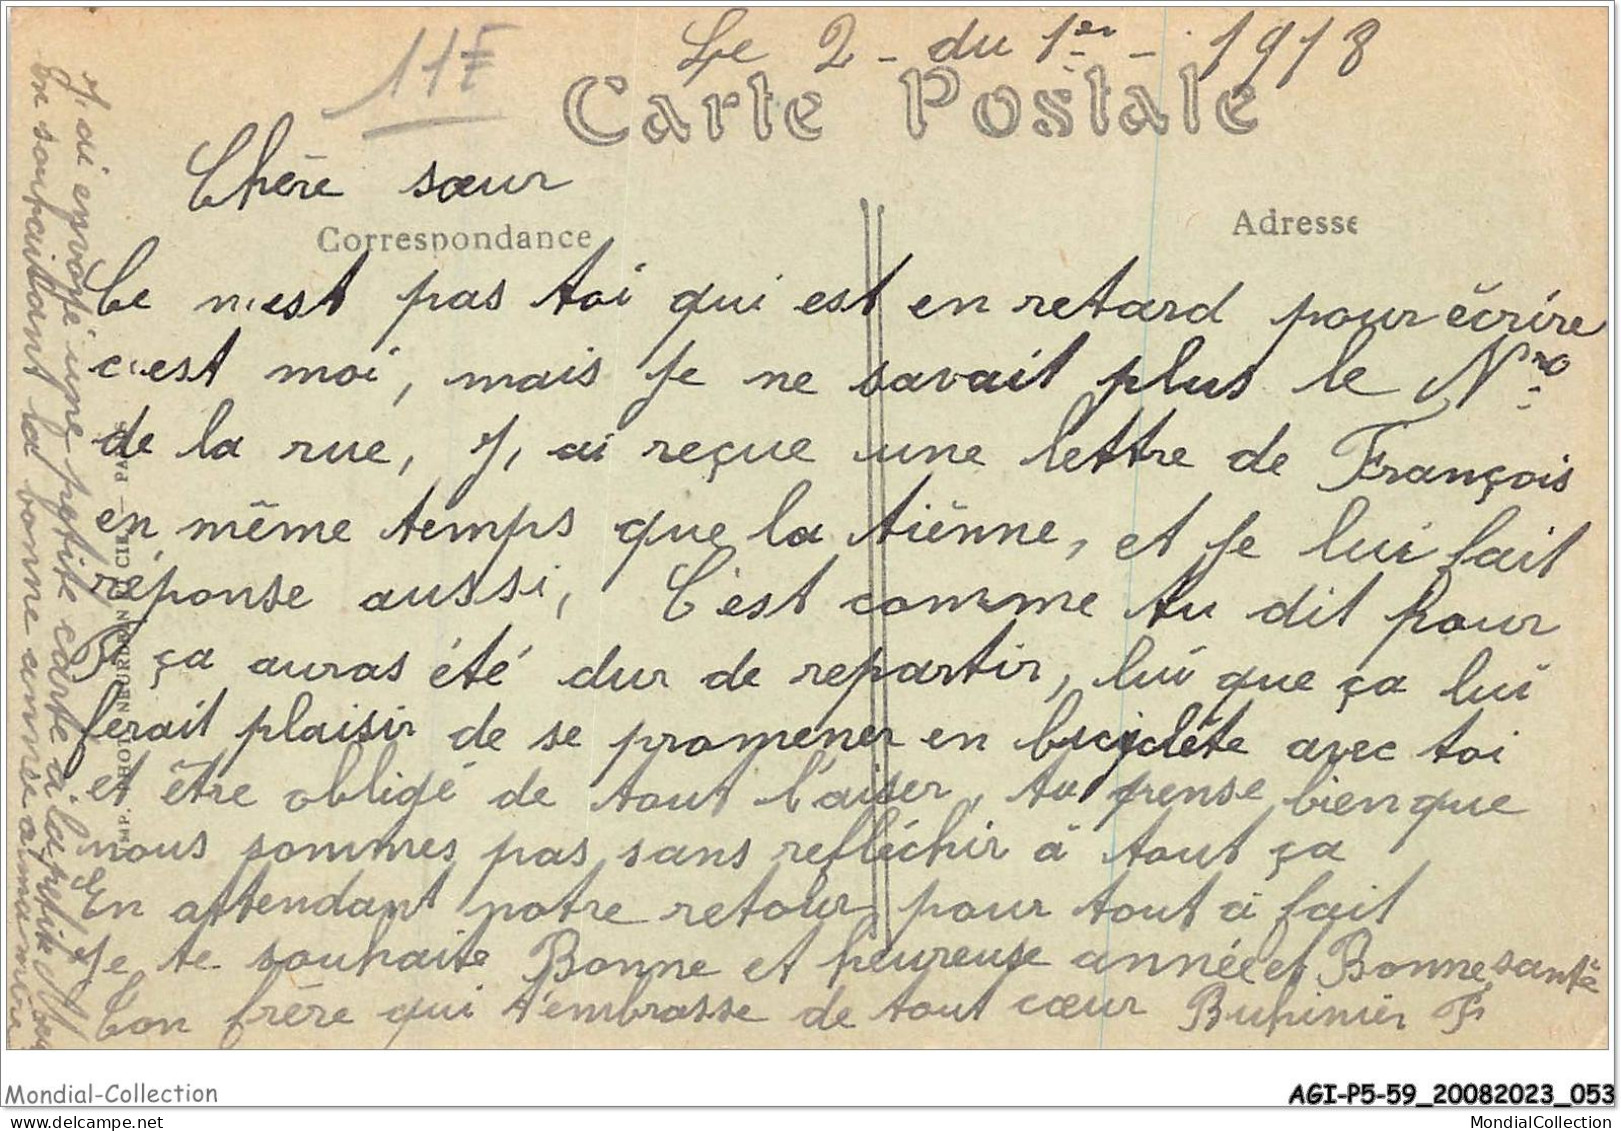 11F
Le 2 - du 1er - 1918
Carte Postale
Chère sœur
Correspondance
Adresse
Ce n'est pas toi qui est en retard pour écrire
c'est moi, mais je ne savait plus le Nro
de la rue, J, ai reçue une lettre de François
en même temps que la tiènne, et je lui fait
réponse aussi, C'est comme tu dit pour
F ça auras été dur de repartir, lui que ça lui
ferait plaisir de se promener en bicyclète avec toi
et être obligé de tout l'aisser, tu pense bien que
nous sommes pas sans refléchir à tout ça
En attendant notre retour pour tout à fait
Je te souhaite Bonne et heureuse année et Bonne santé
Ton frère qui t'embrasse de tout cœur Buhinier F
J, ai envoyé une petite carte a la petite
en souhaitant la bonne année a ma
IMP. PHOT. NEURDEIN & CIE - PARIS
Mondial-Collection
AGI-P5-59_20082023_053
MondialCollection
MondialCollection